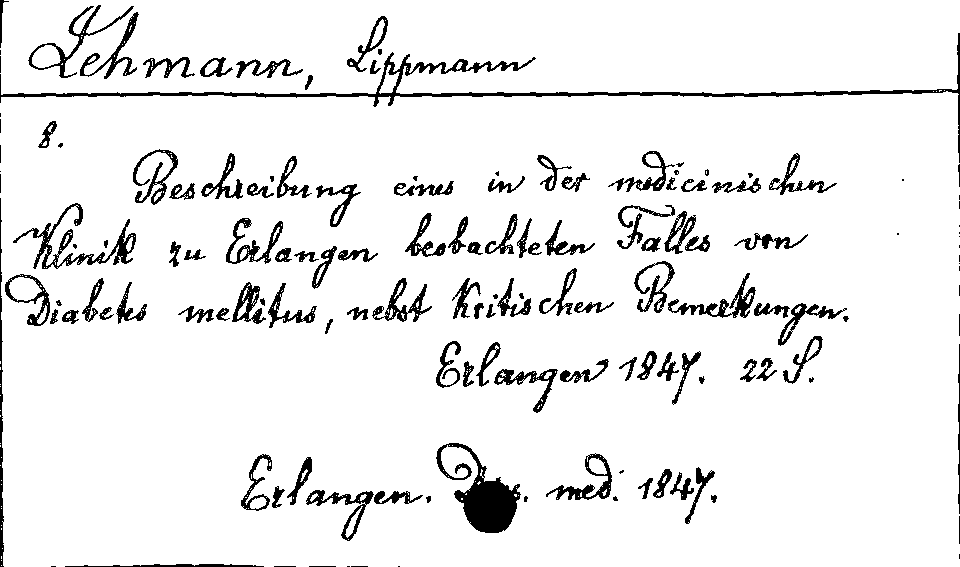 Lehmann, Lippmann
8.
Beschreibung eines in der medicinischen
Klinik zu Erlangen beobachteten Falles von
Diabetes mellitus, nebst kritischen Bemerkungen.
Erlangen 1847. 22 S.
Erlangen. Diss. med. 1847.